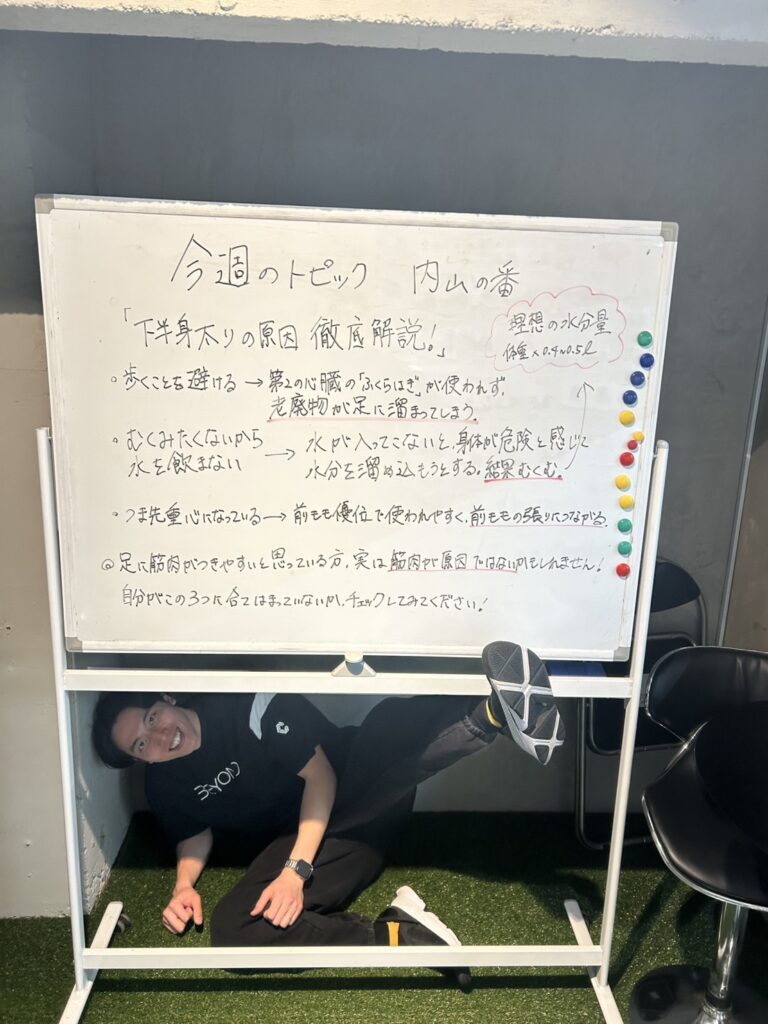 今週のトピック 内山の番
「下半身太りの原因 徹底解説!」
理想の水分量
体重×0.4~0.5ℓ
・歩くことを避ける → 第2の心臓の「ふくらはぎ」が使われず、
老廃物が足に溜まってしまう。
・むくみたくないから
水を飲まない → 水が入ってこないと、身体が危険と感じて
水分を溜め込もうとする。結果むくむ。
・つま先重心になっている → 前もも優位で使われやすく、前ももの張りにつながる。
◎足に筋肉がつきやすいと思っている方、実は筋肉が原因ではないかもしれません!
自分がこの3つに合てはまっていないか、チェックしてみてください!
BEYOND